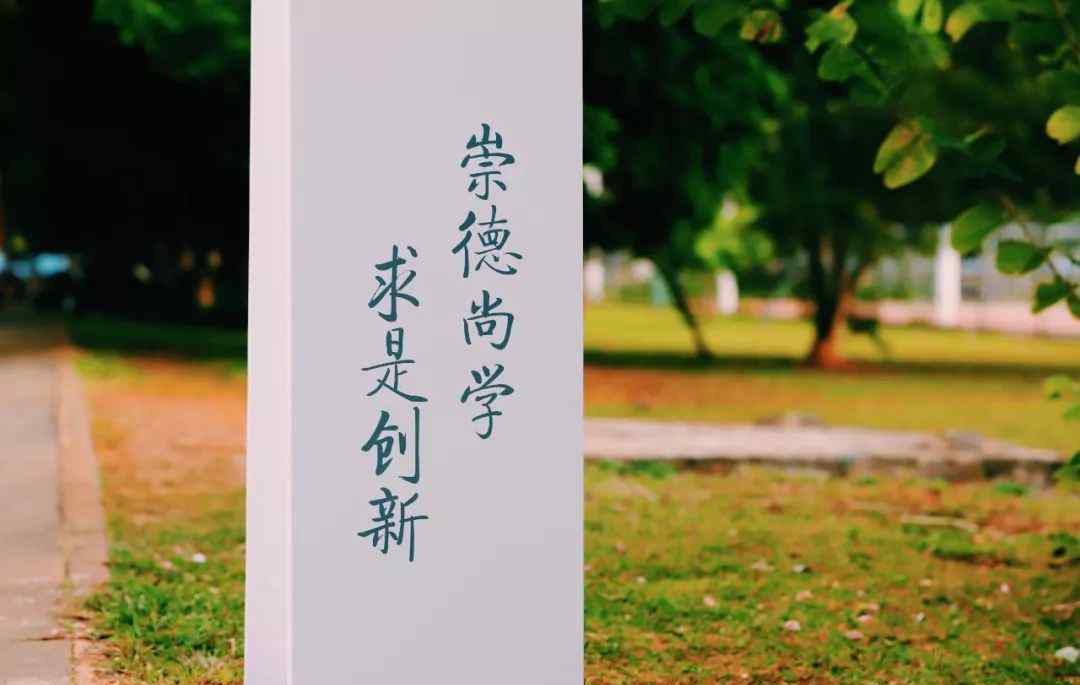 崇德尚学
求是创新